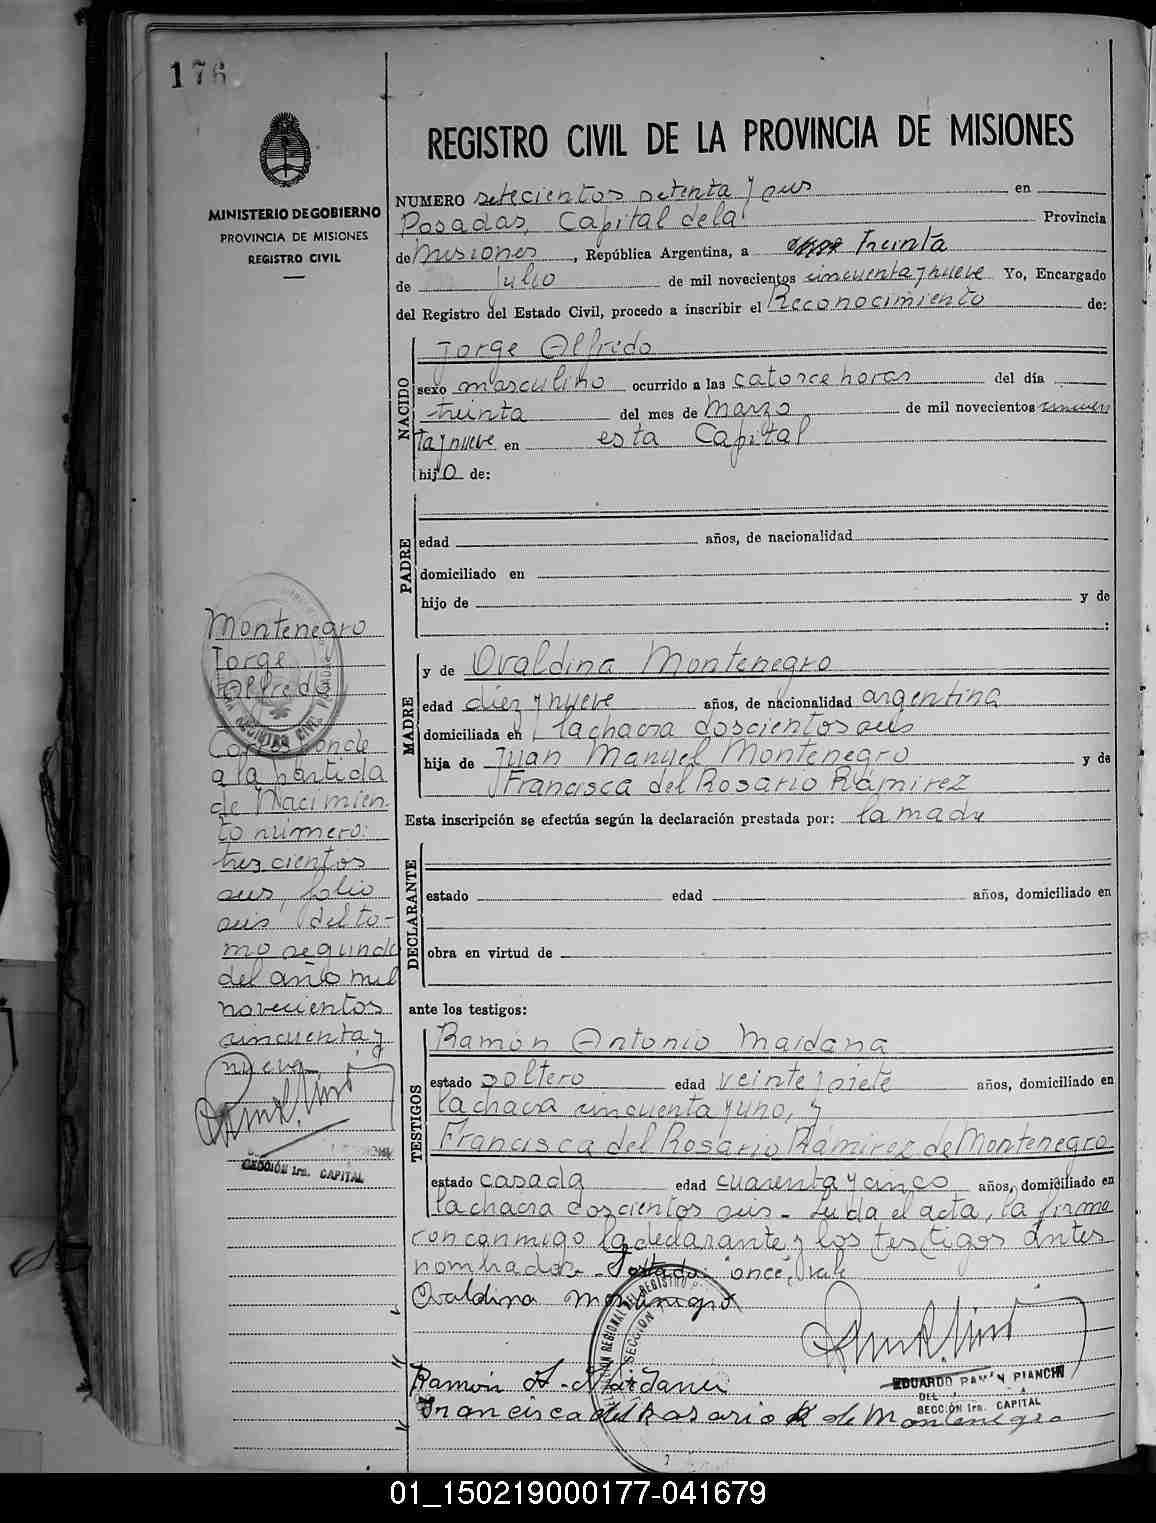 176
REGISTRO CIVIL DE LA PROVINCIA DE MISIONES
MINISTERIO DE GOBIERNO
PROVINCIA DE MISIONES
REGISTRO CIVIL
NUMERO setecientos setenta y seis en
Posadas, Capital de la Provincia
de Misiones, República Argentina, a treinta
de julio de mil novecientos cincuenta y nueve Yo, Encargado
del Registro del Estado Civil, procedo a inscribir el Reconocimiento de:
NACIDO
Jorge Alfredo
sexo masculino ocurrido a las catorce horas del día
treinta del mes de Marzo de mil novecientos cincuen
ta y nueve en esta Capital
hijo de:
PADRE
edad años, de nacionalidad
domiciliado en
hijo de y de
:
MADRE
y de Ovaldina Montenegro
edad diez y nueve años, de nacionalidad argentina
domiciliada en la chacra doscientos seis
hija de Juan Manuel Montenegro y de
Francisca del Rosario Rámirez
Esta inscripción se efectúa según la declaración prestada por: la madre
DECLARANTE
estado edad años, domiciliado en
obra en virtud de
ante los testigos:
TESTIGOS
Ramón Antonio Maidana
estado soltero edad veinte y siete años, domiciliado en
la chacra cincuenta y uno, y
Francisca del Rosario Rámirez de Montenegro
estado casada edad cuarenta y cinco años, domiciliado en
la chacra doscientos seis - Leida el acta, la firma
con conmigo la declarante y los testigos antes
nombrados - Testado: "once", vale
Ovaldina Montenegro
Ramón A. Maidana
Francisca del Rosario R de Montenegro
EDUARDO RAMON PIANCHI
DEL
SECCIÓN 1ra. CAPITAL
Montenegro
Jorge
Alfredo
Corresponde
a la partida
de Nacimien
to número:
trescientos
seis, folio
seis del to-
mo segundo
del año mil
novecientos
cincuenta y
nueve
SECCIÓN 1ra. CAPITAL
01_150219000177-041679